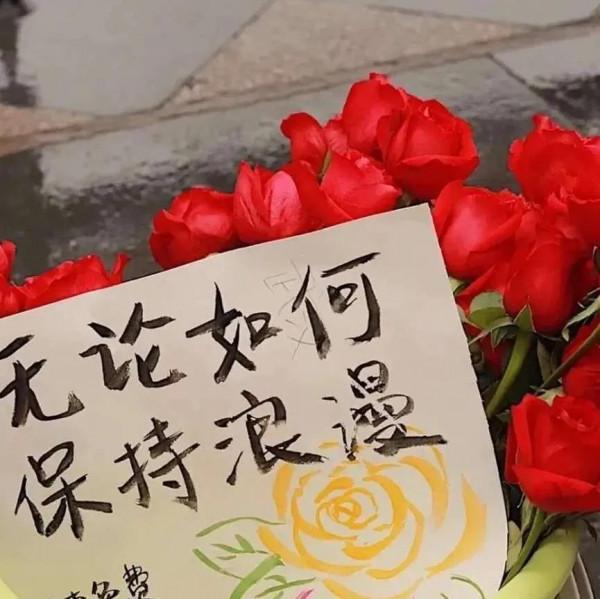 无论如何
保持浪漫
免费